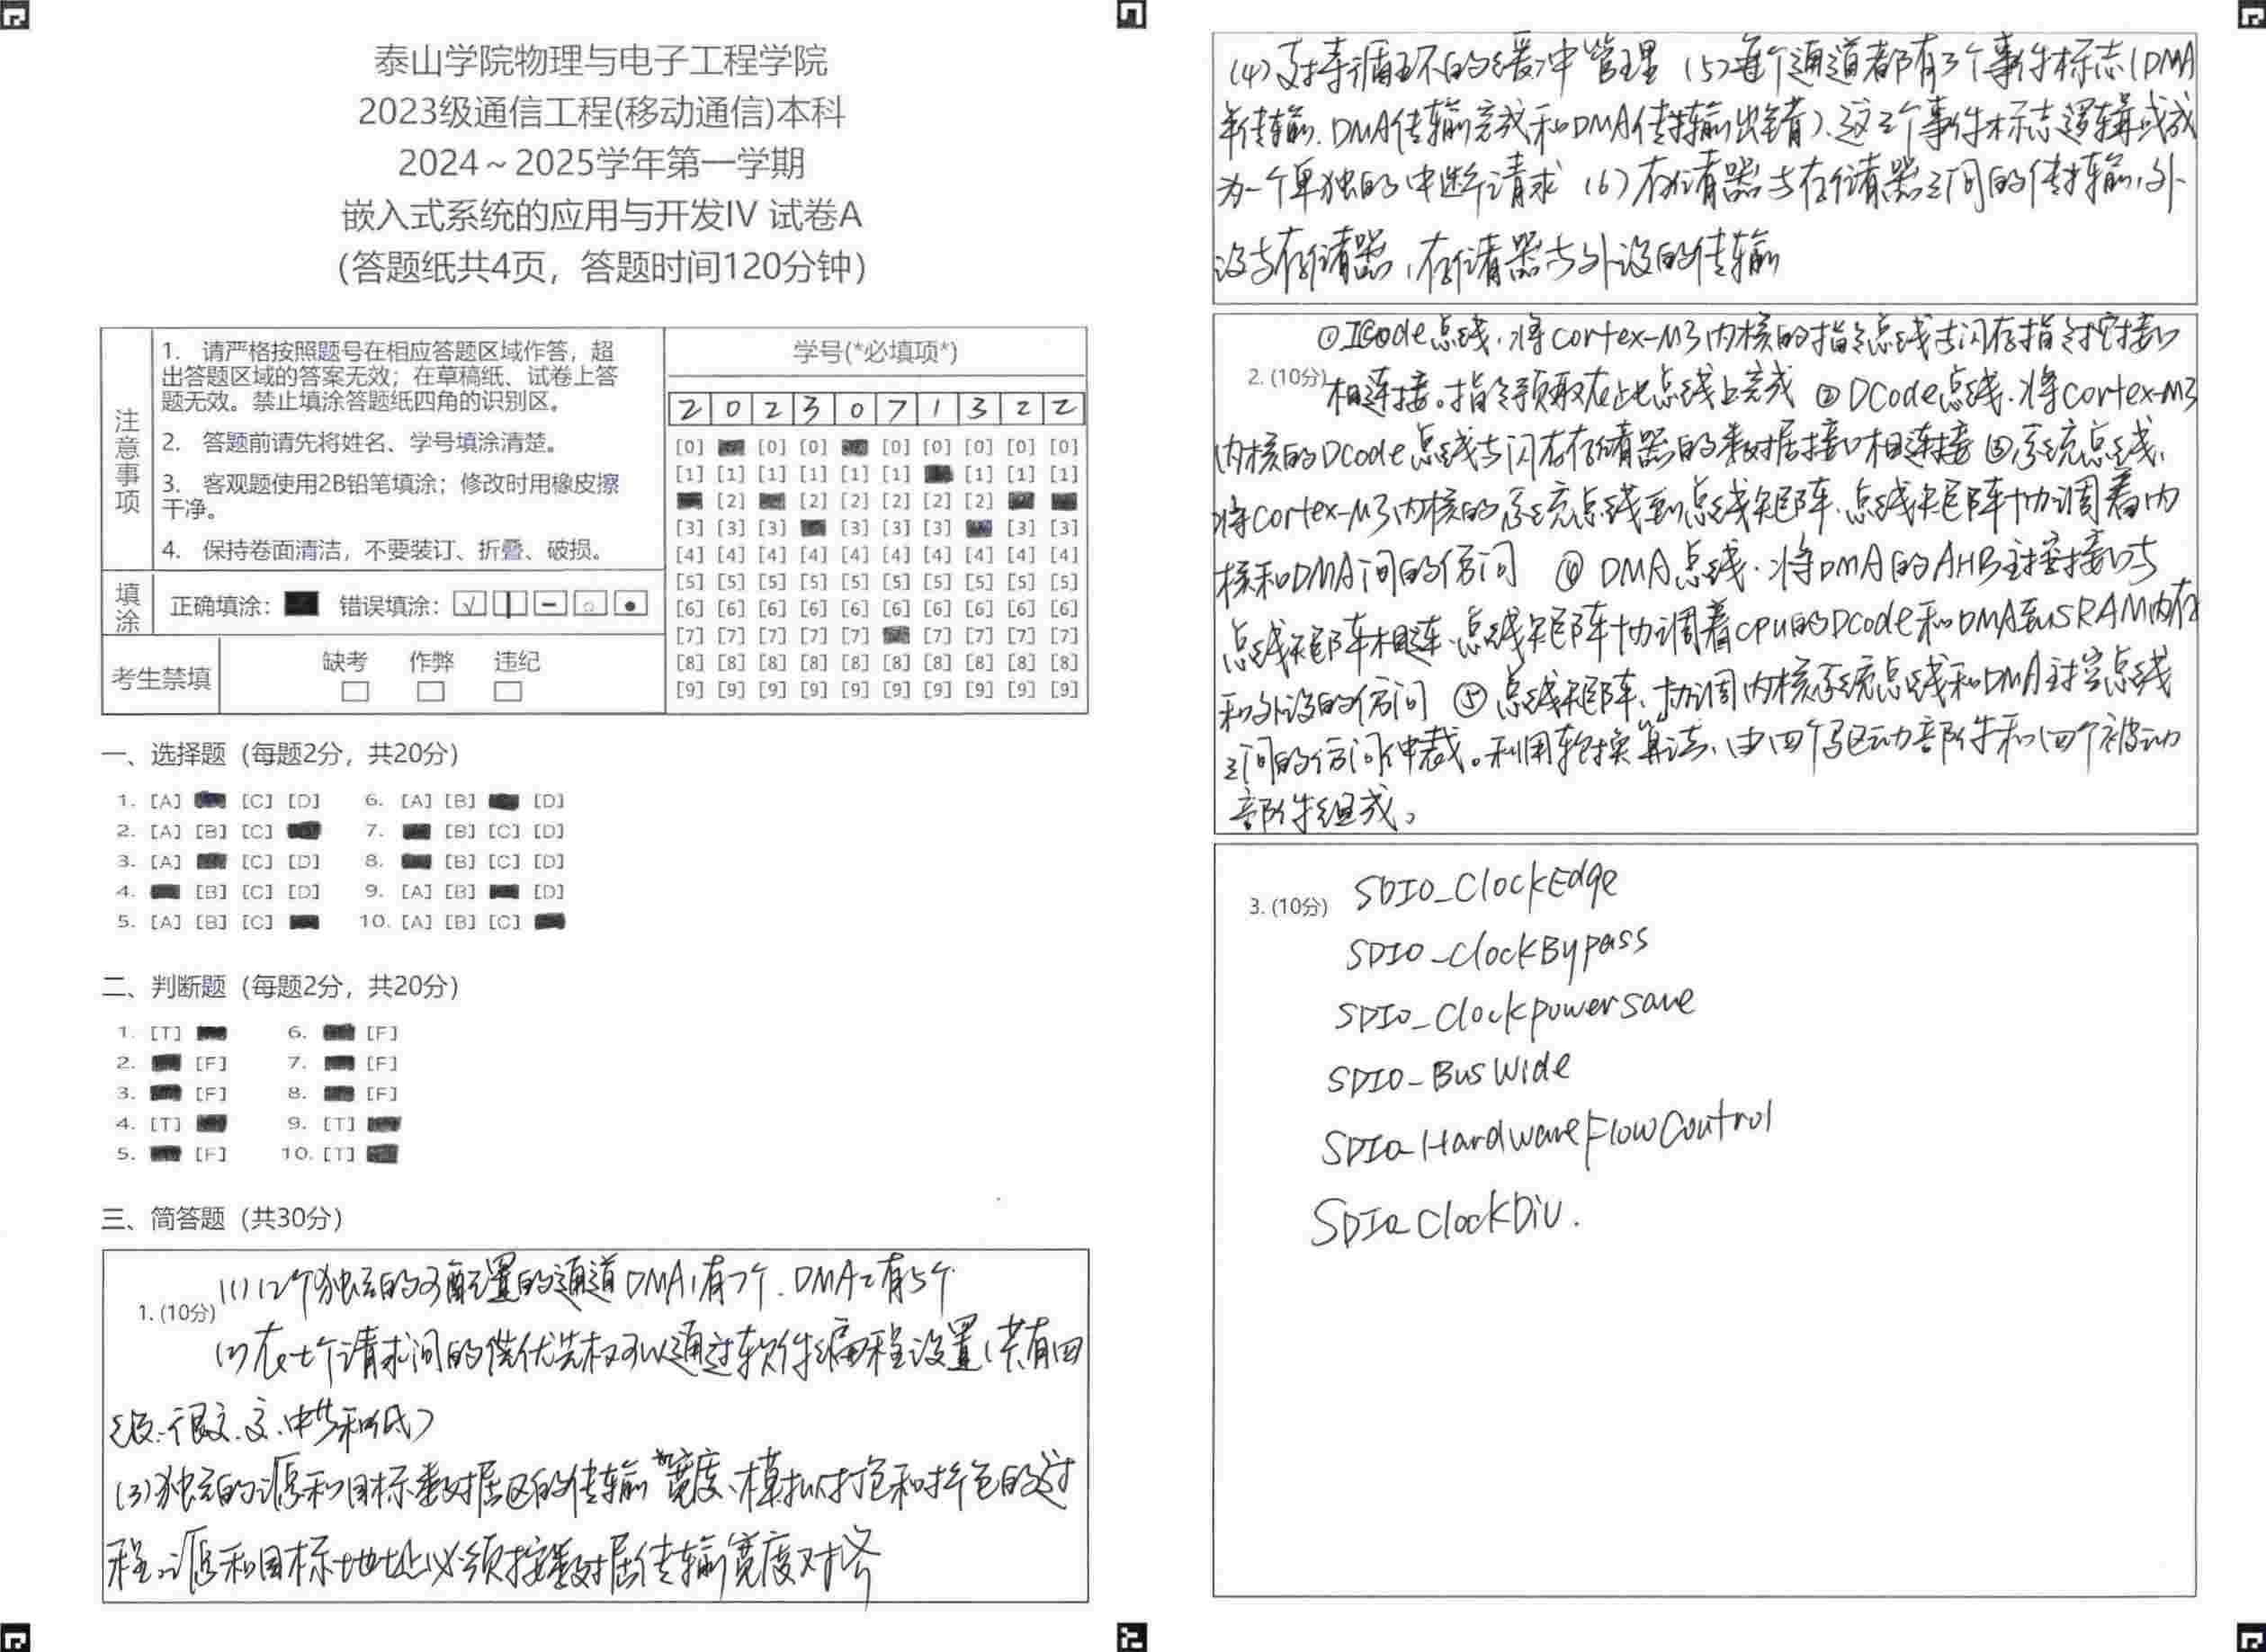 泰山学院物理与电子工程学院
2023级通信工程(移动通信)本科
2024～2025学年第一学期
嵌入式系统的应用与开发IV 试卷A
(答题纸共4页，答题时间120分钟)
注意事项
1. 请严格按照题号在相应答题区域作答，超
出答题区域的答案无效；在草稿纸、试卷上答
题无效。禁止填涂答题纸四角的识别区。
2. 答题前请先将姓名、学号填涂清楚。
3. 客观题使用2B铅笔填涂；修改时用橡皮擦
干净。
4. 保持卷面清洁，不要装订、折叠、破损。
填涂
正确填涂： 错误填涂：
考生禁填
缺考 作弊 违纪
学号(*必填项*)
2 0 2 3 0 7 1 3 2 2
[0] [0] [0] [0] [0] [0] [0] [0]
[1] [1] [1] [1] [1] [1] [1] [1] [1]
[2] [2] [2] [2] [2] [2]
[3] [3] [3] [3] [3] [3] [3] [3]
[4] [4] [4] [4] [4] [4] [4] [4] [4] [4]
[5] [5] [5] [5] [5] [5] [5] [5] [5] [5]
[6] [6] [6] [6] [6] [6] [6] [6] [6] [6]
[7] [7] [7] [7] [7] [7] [7] [7] [7]
[8] [8] [8] [8] [8] [8] [8] [8] [8] [8]
[9] [9] [9] [9] [9] [9] [9] [9] [9] [9]
一、选择题（每题2分，共20分）
1. [A] [C] [D] 6. [A] [B] [D]
2. [A] [B] [C] 7. [B] [C] [D]
3. [A] [C] [D] 8. [B] [C] [D]
4. [B] [C] [D] 9. [A] [B] [D]
5. [A] [B] [C] 10. [A] [B] [C]
二、判断题（每题2分，共20分）
1. [T] 6. [F]
2. [F] 7. [F]
3. [F] 8. [F]
4. [T] 9. [T]
5. [F] 10. [T]
三、简答题（共30分）
1. (10分) (1) 12个独立的可配置的通道 DMA1有7个. DMA2有5个
(2) 在七个请求间的优先权可以通过软件编程设置(共有四
级:很高.高.中等和低)
(3)独立的源和目标数据区的传输宽度、模拟打包和拆包的过
程.源和目标地址必须按数据传输宽度对齐
(4)支持循环的缓冲管理 (5)每个通道都有3个事件标志(DMA
半传输.DMA传输完成和DMA传输出错)、这三个事件标志逻辑或成
为一个单独的中断请求 (6)存储器与存储器之间的传输,外
设与存储器,存储器与外设的传输
①ICode总线.将cortex-M3内核的指令总线与闪存指令接口
2. (10分) 相连接。指令预取在此总线上完成 ②DCode总线.将Cortex-M3
内核的DCode总线与闪存存储器的数据接口相连接 ③系统总线、
将cortex-M3内核的系统总线到总线矩阵.总线矩阵协调着内
核和DMA间的访问 ④ DMA总线.将DMA的AHB主控接口与
总线矩阵相连.总线矩阵协调着CPU的DCode和DMA到SRAM内存
和外设的访问 ⑤总线矩阵、协调内核系统总线和DMA主控总线
之间的访问仲裁。利用轮换算法、由四个驱动部件和四个被动
部件组成。
3. (10分) SDIO_ClockEdge
SDIO_ClockBypass
SDIO_Clockpowersave
SDIO_BusWide
SDIO_HardwareFlowControl
SDIO_ClockDiv.